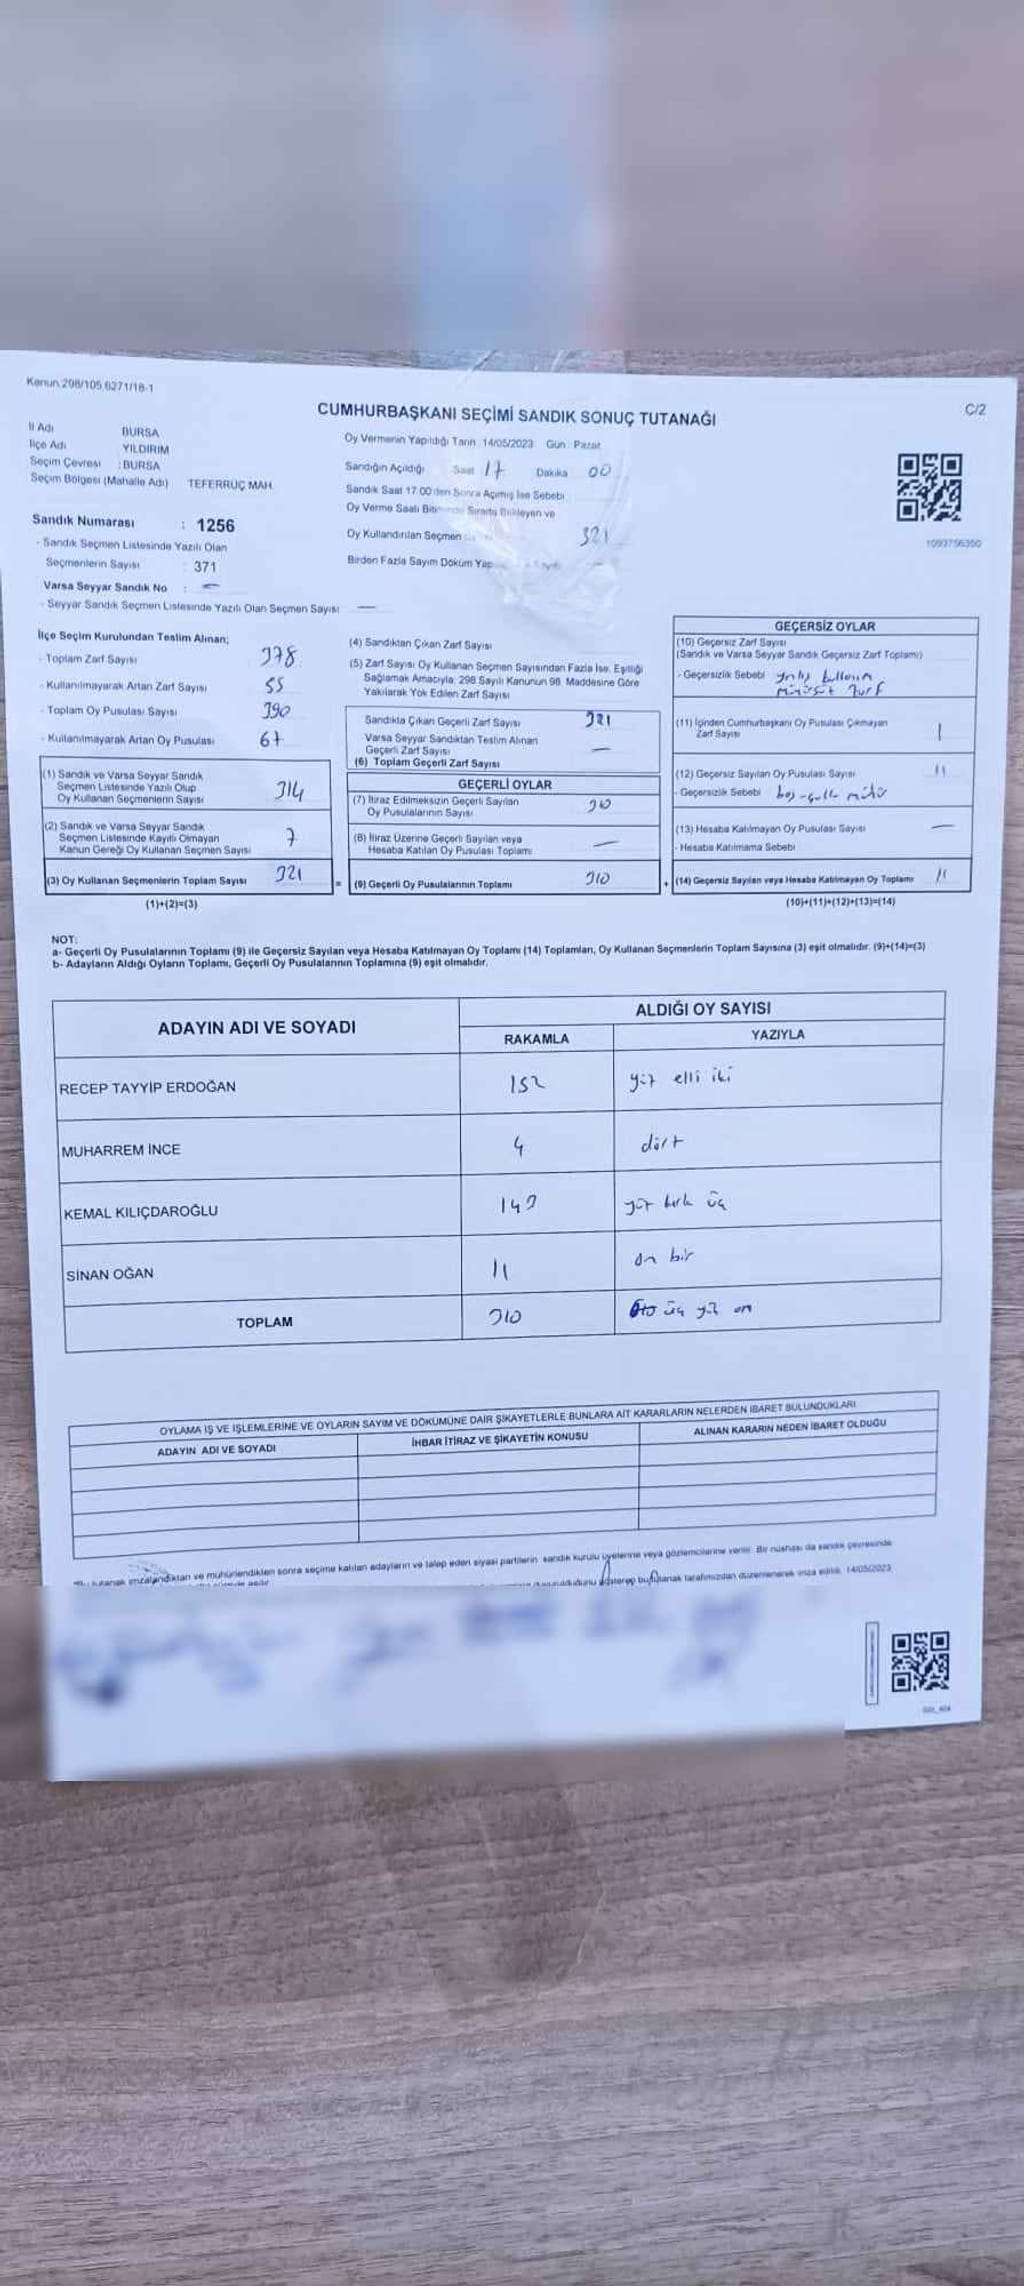 Kanun 298/105 6271/18-1
CUMHURBAŞKANI SEÇİMİ SANDIK SONUÇ TUTANAĞI
C/2
İl Adı BURSA
İlçe Adı YILDIRIM
Seçim Çevresi : BURSA
Seçim Bölgesi (Mahalle Adı) TEFERRÜÇ MAH.
Sandık Numarası : 1256
- Sandık Seçmen Listesinde Yazılı Olan
Seçmenlerin Sayısı : 371
Varsa Seyyar Sandık No : —
- Seyyar Sandık Seçmen Listesinde Yazılı Olan Seçmen Sayısı —
Oy Vermenin Yapıldığı Tarih 14/05/2023 Gün : Pazar
Sandığın Açıldığı Saat 17 Dakika 00
Sandık Saat 17:00'den Sonra Açılmış İse Sebebi
Oy Verme Saati Sırada Bekleyen ve
Oy Kullandırılan Seçmen 321
Birden Fazla Sayım Döküm
1093756350
İlçe Seçim Kurulundan Teslim Alınan;
- Toplam Zarf Sayısı 378
- Kullanılmayarak Artan Zarf Sayısı 55
- Toplam Oy Pusulası Sayısı 390
- Kullanılmayarak Artan Oy Pusulası 67
(1) Sandık ve Varsa Seyyar Sandık
Seçmen Listesinde Yazılı Olup
Oy Kullanan Seçmenlerin Sayısı 314
(2) Sandık ve Varsa Seyyar Sandık
Seçmen Listesinde Kayıtlı Olmayan
Kanun Gereği Oy Kullanan Seçmen Sayısı 7
(3) Oy Kullanan Seçmenlerin Toplam Sayısı 321
(1)+(2)=(3)
(4) Sandıktan Çıkan Zarf Sayısı
(5) Zarf Sayısı Oy Kullanan Seçmen Sayısından Fazla İse, Eşitliği
Sağlamak Amacıyla; 298 Sayılı Kanunun 98. Maddesine Göre
Yakılarak Yok Edilen Zarf Sayısı
Sandıkta Çıkan Geçerli Zarf Sayısı 321
Varsa Seyyar Sandıktan Teslim Alınan
Geçerli Zarf Sayısı —
(6) Toplam Geçerli Zarf Sayısı
GEÇERLİ OYLAR
(7) İtiraz Edilmeksizin Geçerli Sayılan
Oy Pusulalarının Sayısı 310
(8) İtiraz Üzerine Geçerli Sayılan veya
Hesaba Katılan Oy Pusulası Toplamı —
= (9) Geçerli Oy Pusulalarının Toplamı 310
GEÇERSİZ OYLAR
(10) Geçersiz Zarf Sayısı
(Sandık ve Varsa Seyyar Sandık Geçersiz Zarf Toplamı)
- Geçersizlik Sebebi
(11) İçinden Cumhurbaşkanı Oy Pusulası Çıkmayan
Zarf Sayısı
(12) Geçersiz Sayılan Oy Pusulası Sayısı 11
- Geçersizlik Sebebi
(13) Hesaba Katılmayan Oy Pusulası Sayısı —
- Hesaba Katılmama Sebebi
+ (14) Geçersiz Sayılan veya Hesaba Katılmayan Oy Toplamı 11
(10)+(11)+(12)+(13)=(14)
NOT:
a- Geçerli Oy Pusulalarının Toplamı (9) ile Geçersiz Sayılan veya Hesaba Katılmayan Oy Toplamı (14) Toplamları, Oy Kullanan Seçmenlerin Toplam Sayısına (3) eşit olmalıdır. (9)+(14)=(3)
b- Adayların Aldığı Oyların Toplamı, Geçerli Oy Pusulalarının Toplamına (9) eşit olmalıdır.
ADAYIN ADI VE SOYADI ALDIĞI OY SAYISI
RAKAMLA YAZIYLA
RECEP TAYYİP ERDOĞAN 152 yüz elli iki
MUHARREM İNCE 4 dört
KEMAL KILIÇDAROĞLU 143 yüz kırk üç
SİNAN OĞAN 11 on bir
TOPLAM 310 üç yüz on
OYLAMA İŞ VE İŞLEMLERİNE VE OYLARIN SAYIM VE DÖKÜMÜNE DAİR ŞİKAYETLERLE BUNLARA AİT KARARLARIN NELERDEN İBARET BULUNDUKLARI
ADAYIN ADI VE SOYADI İHBAR İTİRAZ VE ŞİKAYETİN KONUSU ALINAN KARARIN NEDEN İBARET OLDUĞU
tutanak imzalandıktan ve mühürlendikten sonra seçime katılan adayların ve talep eden siyasi partilerin sandık kurulu üyelerine veya gözlemcilerine verilir. Bir nüshası da sandık çevresinde
tarafımızdan düzenlenerek imza edildi. 14/05/2023